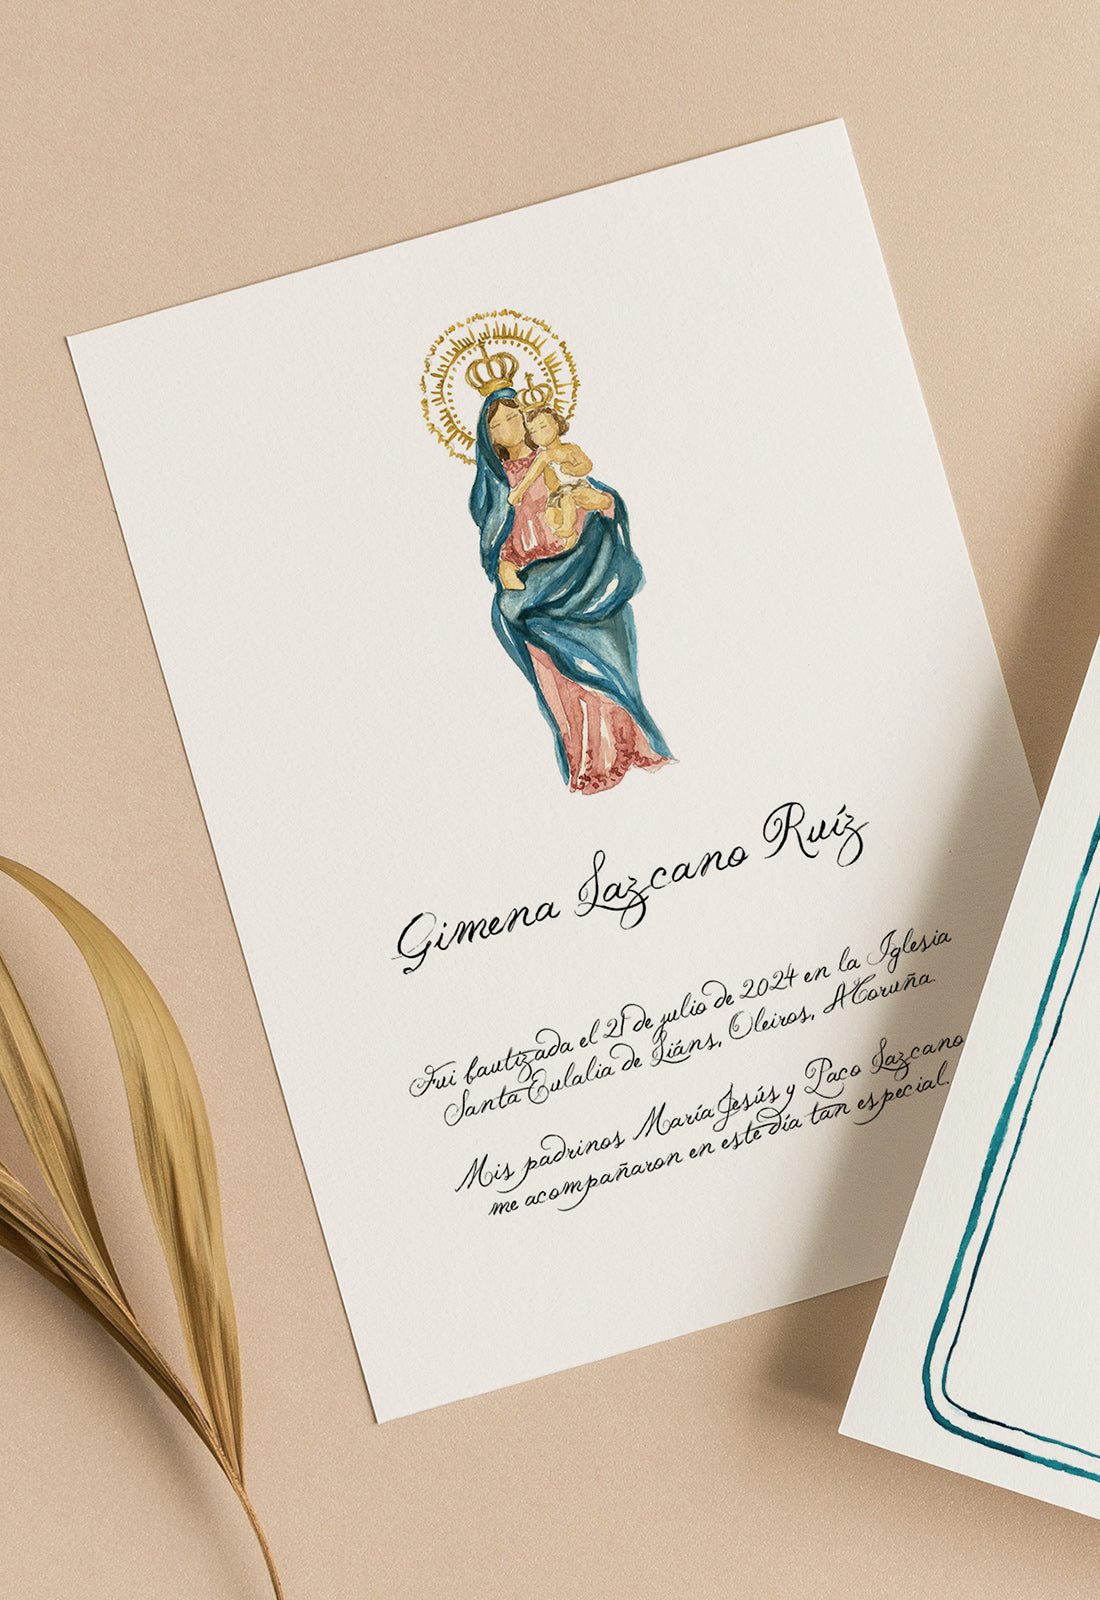 Gimena Lazcano Ruíz
Fui bautizada el 21 de julio de 2024 en la Iglesia
Santa Eulalia de Liáns, Oleiros, A Coruña.
Mis padrinos María Jesús y Paco Lazcano
me acompañaron en este día tan especial.